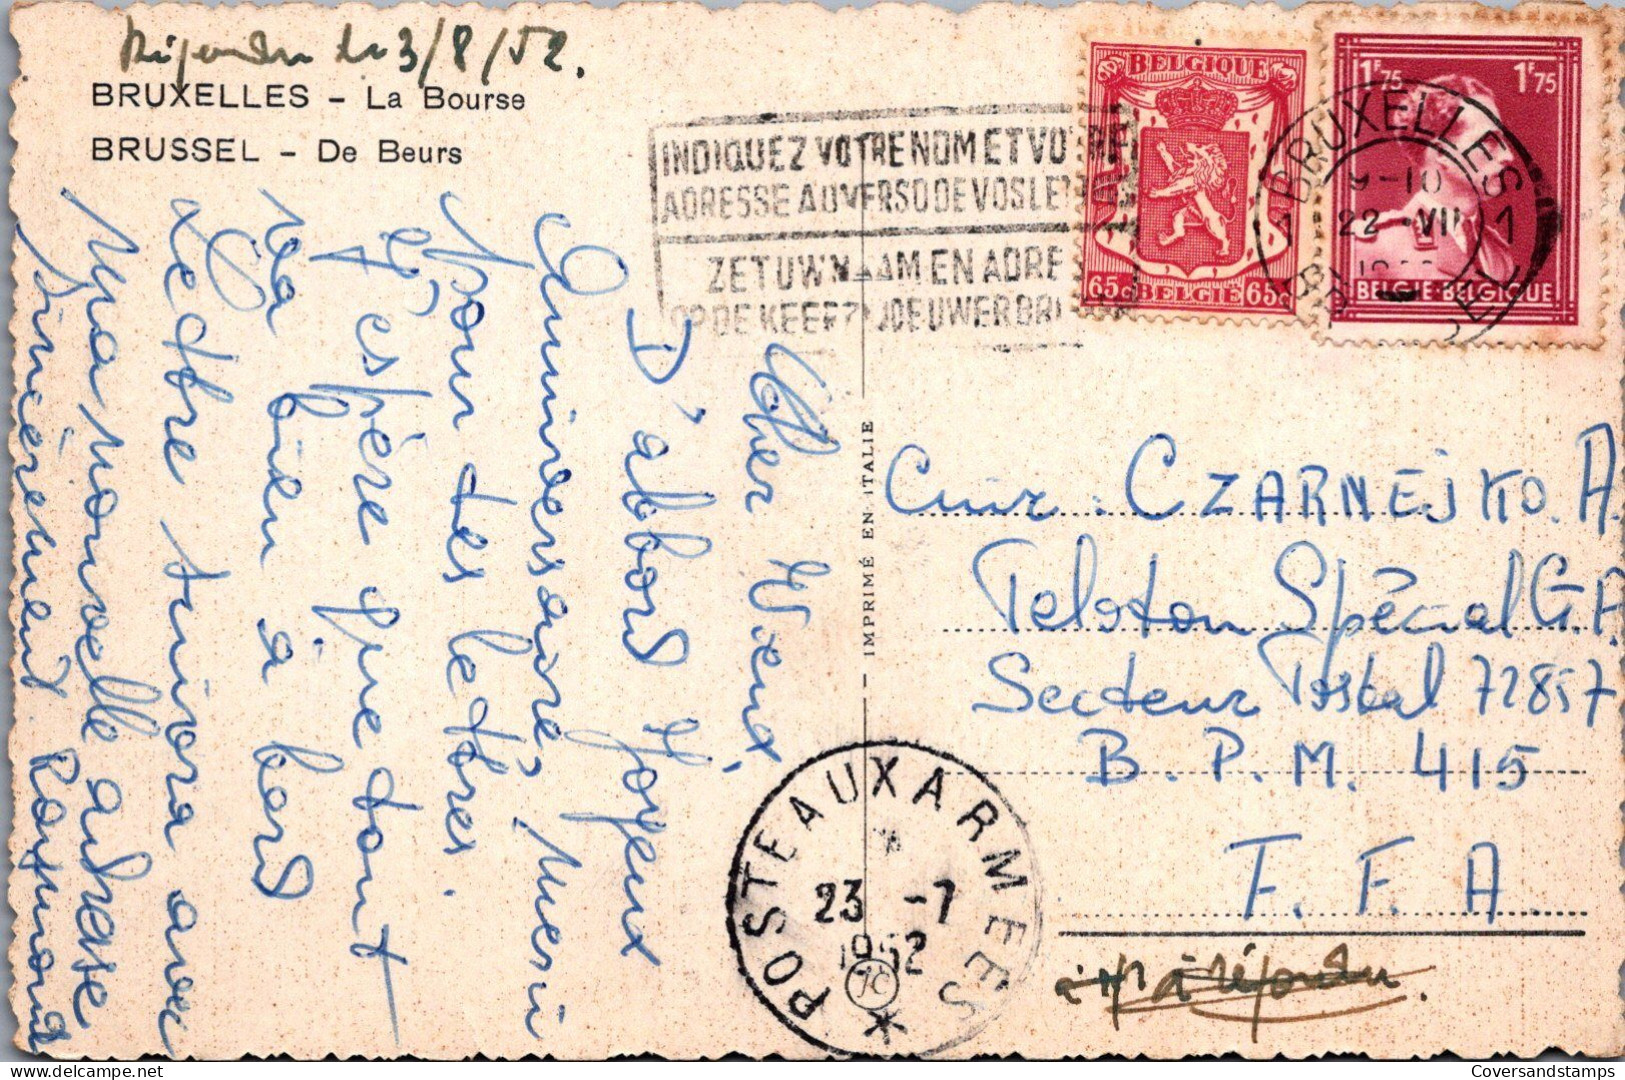 Répondu le 3/8/52.
BRUXELLES – La Bourse
BRUSSEL – De Beurs
INDIQUEZ VOTRE NOM ET VOTRE
ADRESSE AU VERSO DE VOS LETTRES
ZET UW NAAM EN ADRES
OP DE KEERZIJDE UWER BRIEVEN
BELGIQUE
65c BELGIE 65c
1F75 1F75
BELGIE-BELGIQUE
BRUXELLES
1 1
9-10
22 -VII
BRUSSEL
Cher Vieux,
D'abbord Joyeux
Anniversaire, Merci
pour tes lettres.
et j'espère que tout
va bien à bord
Lettre suivra avec
Ma nouvelle adresse
Sincèrement Raymond
IMPRIMÉ EN ITALIE
Cuir. CZARNEJKO. A.
Peloton Spécial G.P.
Secteur Postal 72857
B.P.M. 415
F.F.A.
POSTE AUX ARMEES
23 -7
1952
*
à répondre.
Coversandstamps